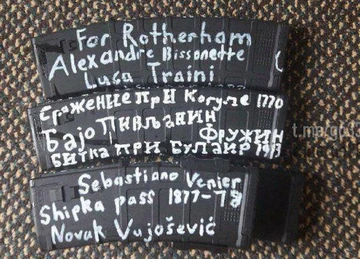 For Rotherham
Alexandre Bissonette
Luca Traini
Сражение при Кагуле 1770
Бајо Пивљанин
Фружин
Битка при Булаир 1913
Sebastiano Venier
Shipka pass 1877-78
Novak Vujošević